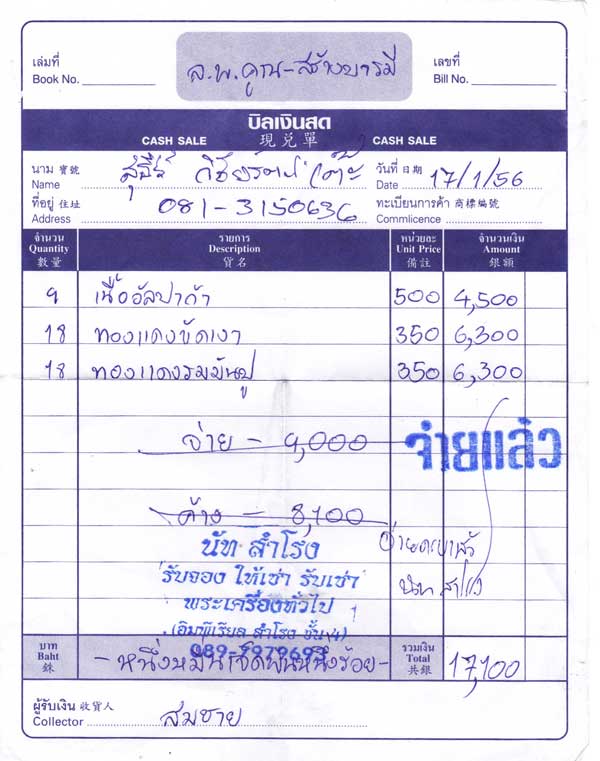 ล.พ.คูณ-สร้างบารมี
เล่มที่
Book No.
เลขที่
Bill No.
บิลเงินสด
CASH SALE 現兑單 CASH SALE
นาม 寶號
Name
วันที่ 日期
Date 17/1/56
ที่อยู่ 住址
Address 081-3150636
ทะเบียนการค้า 商標編號
Commlicence
จำนวน รายการ หน่วยละ จำนวนเงิน
Quantity Description Unit Price Amount
數量 貨名 備註 銀額
9 เนื้ออัลปาก้า 500 4,500
18 ทองแดงขัดเงา 350 6,300
18 ทองแดงรมมันปู 350 6,300
จ่าย - 9,000
จ่ายแล้ว
ค้าง - 8,100
นัท สำโรง
รับจอง ให้เช่า รับเช่า
พระเครื่องทั่วไป
(อิมพีเรียล สำโรง ชั้น 4)
บาท
Baht
銖
-หนึ่งหมื่นเจ็ดพันหนึ่งร้อย-
รวมเงิน
Total
共銀
17,100
ผู้รับเงิน 收貨人
Collector สมชาย